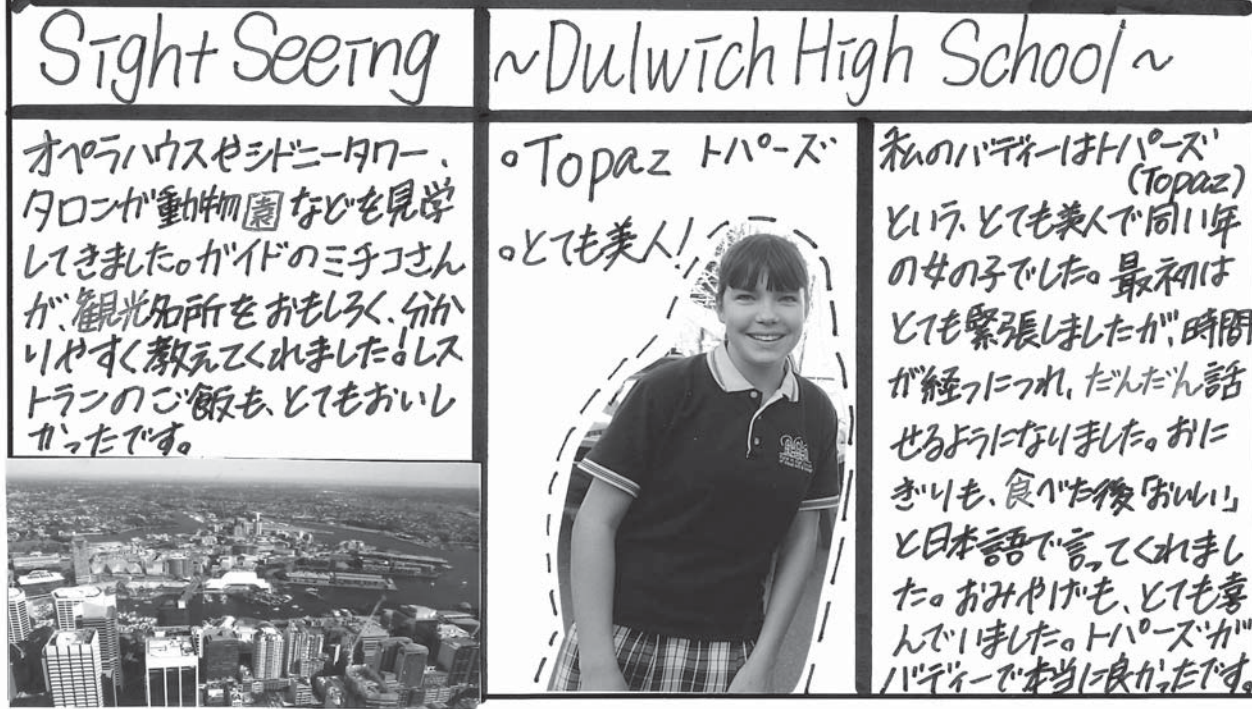 Sight Seeing
オペラハウスやシドニータワー、
タロンガ動物園などを見学
してきました。ガイドのミチコさん
が、観光名所をおもしろく、分か
りやすく教えてくれました！レス
トランのご飯も、とてもおいし
かったです。
~Dulwich High School~
。Topaz トパーズ
。とても美人！
私のバディーはトパーズ
(Topaz)
という、とても美人で同い年
の女の子でした。最初は
とても緊張しましたが、時間
が経つにつれ、だんだん話
せるようになりました。おに
ぎりも、食べた後「おいしい」
と日本語で言ってくれまし
た。おみやげも、とても喜
んでいました。トパーズが
バディーで本当に良かったです。